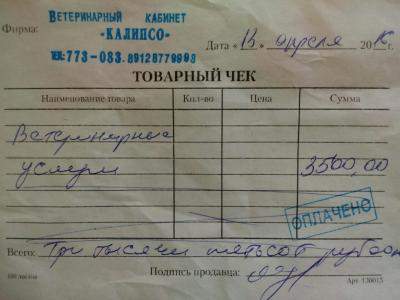 Фирма: ВЕТЕРИНАРНЫЙ КАБИНЕТ
«КАЛИПСО»
Дата « » апреля 20 г.
ТЕЛ: 773-083. 89128779998
ТОВАРНЫЙ ЧЕК
Наименование товара Кол-во Цена Сумма
Ветеринарные
услуги 3500,00
ОПЛАЧЕНО
Всего: Три тысячи пятьсот рублей
100 листов Подпись продавца: Арт. 130015